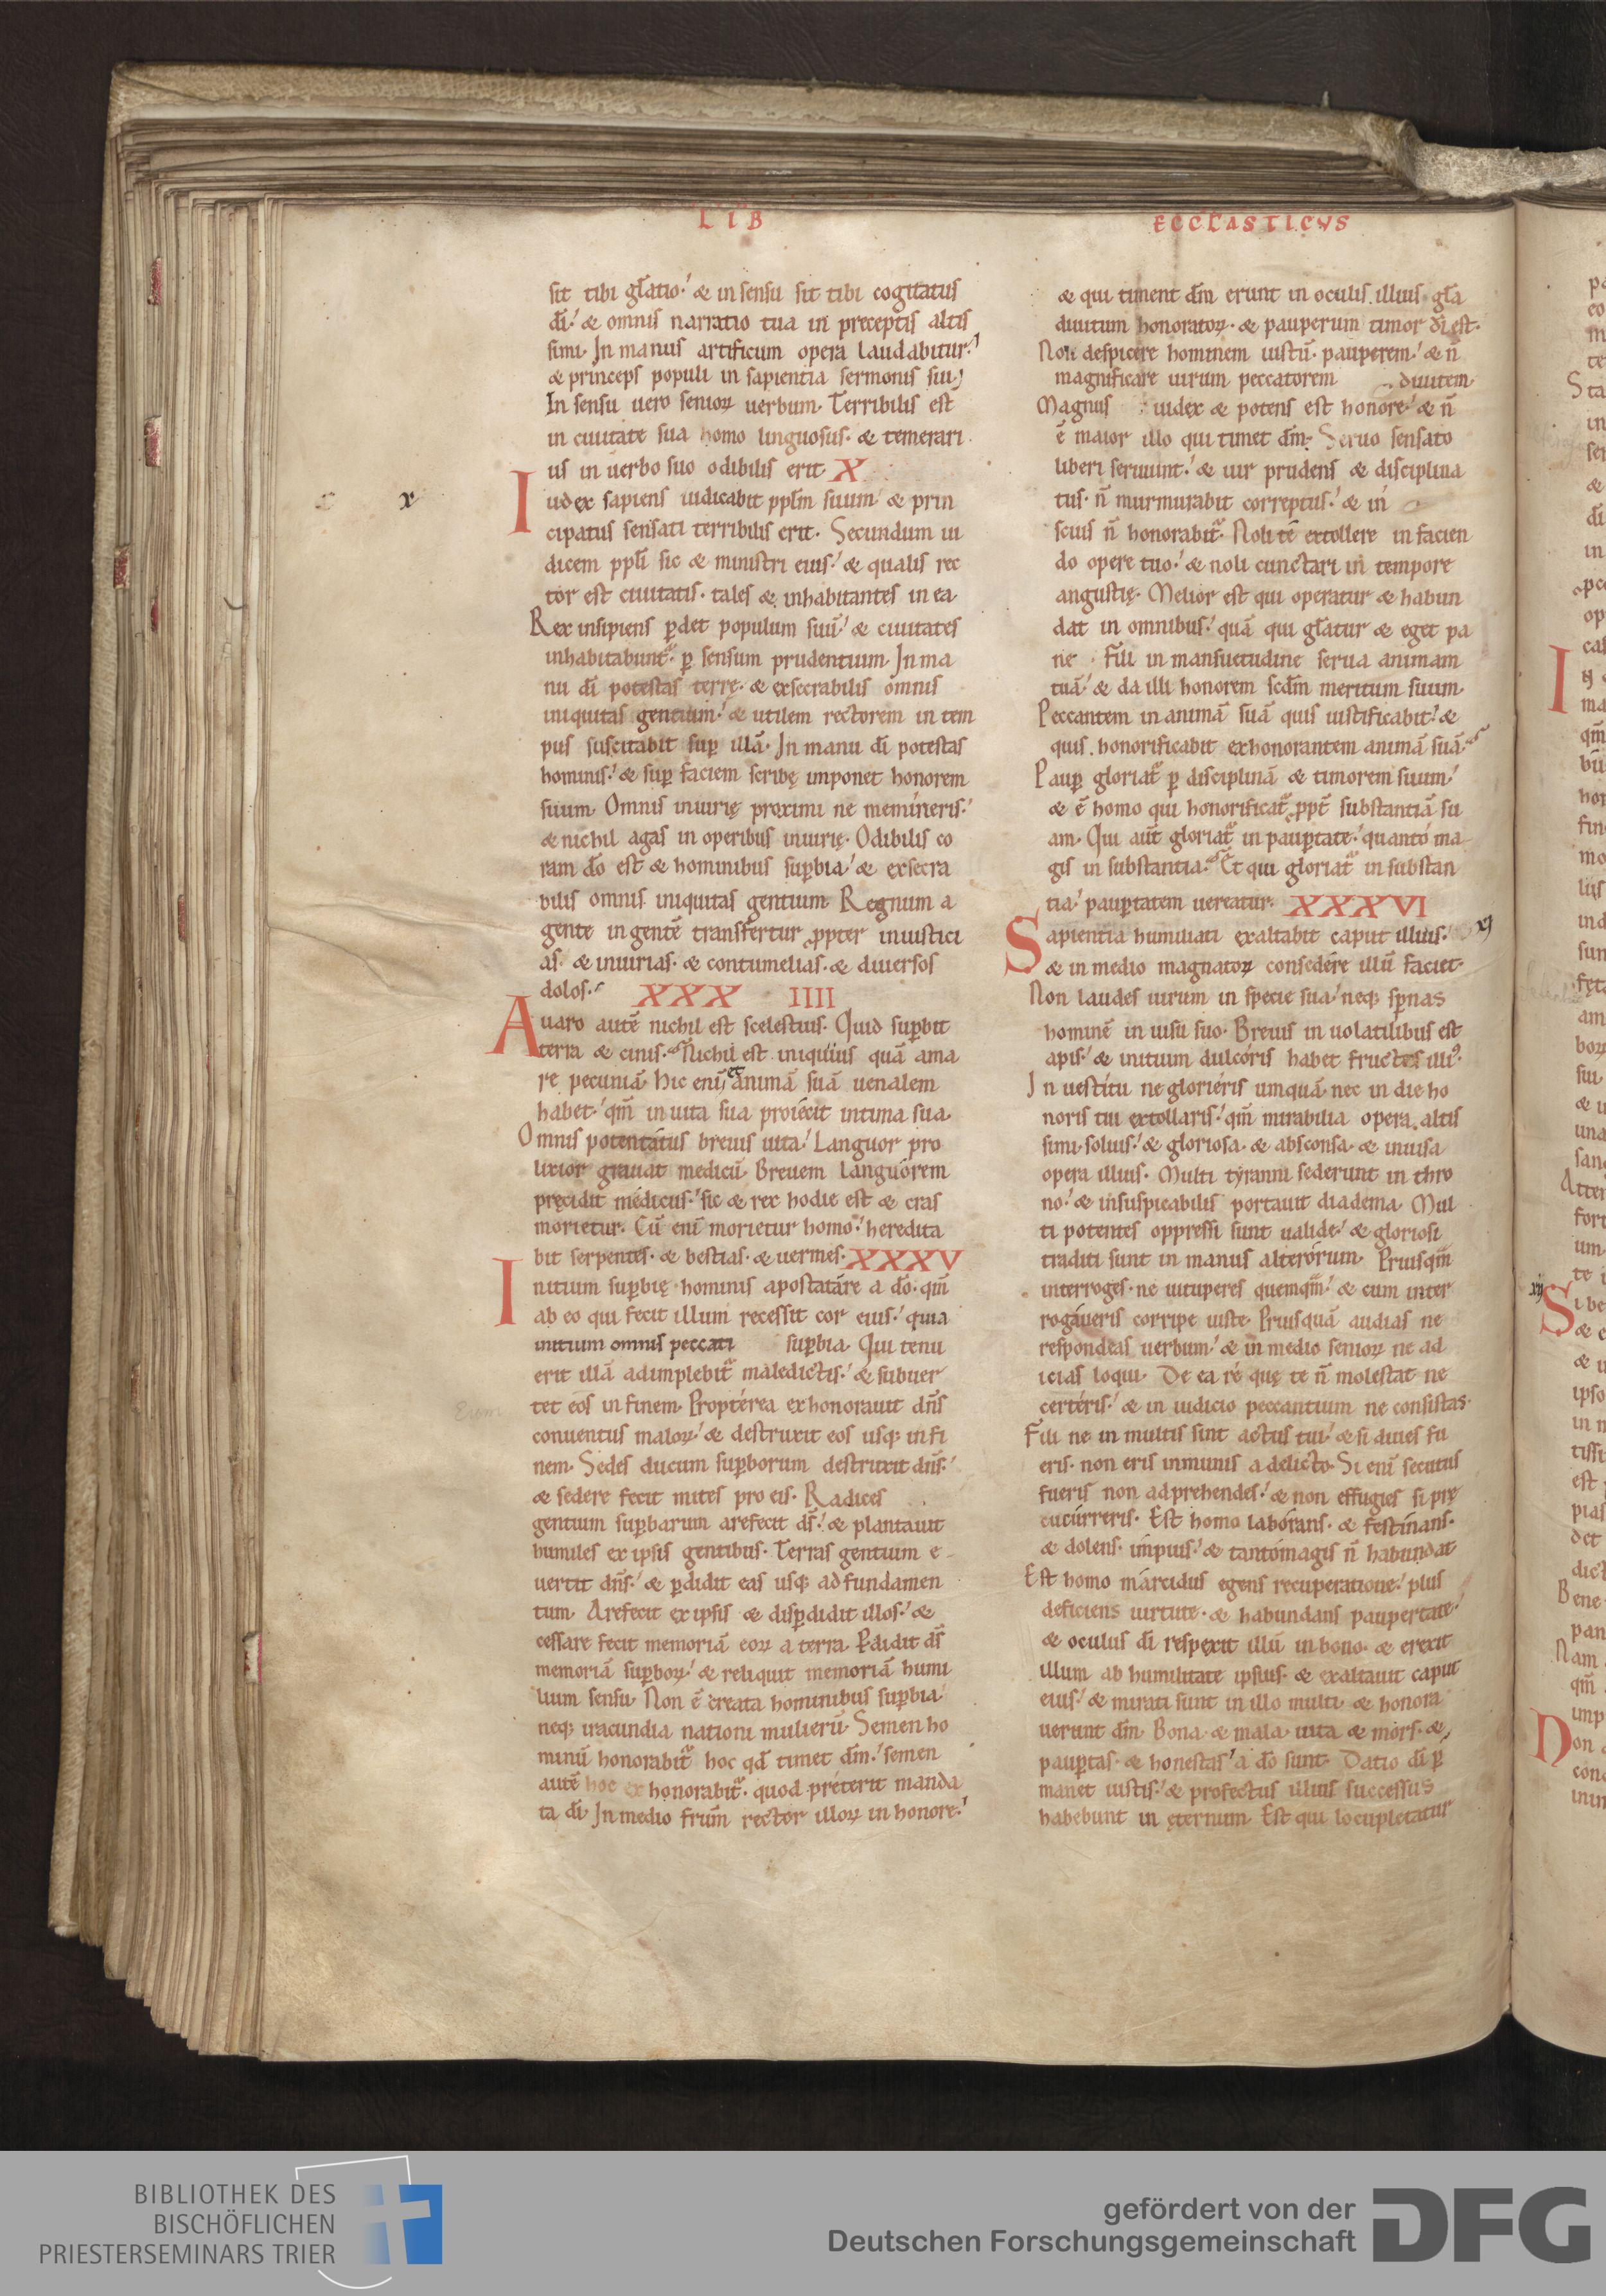 LIB
sit tibi gl̄atio. & in sensu sit tibi cogitatus
dī. & omnis narratio tua in preceptis altis
simi. In manus artificum opera laudabitur.
& princeps populi in sapientia sermonis sui.
In sensu uero senioꝝ uerbum. Terribilis est
in ciuitate sua homo linguosus. & temerari
us in uerbo suo odibilis erit X
x
Iudex sapiens iudicabit ppl̄m suum. & prin
cipatus sensati terribilis erit. Secundum iu
dicem ppl̄i sic & ministri eius. & qualis rec
tor est ciuitatis. tales & inhabitantes in ea.
Rex insipiens ꝑdet populum suū. & ciuitates
inhabitabunt᷑. ꝑ sensum prudentium. In ma
nu dī potestas terrę. & exsecrabilis omnis
iniquitas gentium. & utilem rectorem in tem
pus suscitabit suꝑ illā. In manu dī potestas
hominis. & suꝑ faciem scribę imponet honorem
suum. Omnis iniurię proximi ne memineris.
& nichil agas in operibus iniurię. Odibilis co
ram dō est & hominibus suꝑbia. & exsecra
bilis omnis iniquitas gentium. Regnum a
gente in gentē transfertur ꝓpter iniustici
as. & iniurias. & contumelias. & diuersos
dolos. XXX IIII
Auaro autē nichil est scelestius. Quid suꝑbit
terra & cinis. Nichil est iniquius quā ama
re pecuniā. Hic enī et animā suā uenalem
habet. qm̄ in uita sua proiecit intima sua.
Omnis potentatus breuis uita. Languor pro
lixior grauat medicū. Breuem languorem
pręcidit medicus. sic & rex hodie est & cras
morietur. Cū enī morietur homo. heredita
bit serpentes. & bestias. & uermes. XXXV
Initium suꝑbię hominis apostatare a dō. qm̄
ab eo qui fecit illum recessit cor eius. quia
initium omnis peccati suꝑbia. Qui tenu
erit illā adimplebit᷑ maledictis. & subuer
tet eos in finem. Propterea exhonorauit dn̄s
conuentus maloꝝ. & destruxit eos usq; in fi
nem. Sedes ducum suꝑborum destruxit dn̄s.
& sedere fecit mites pro eis. Radices
gentium suꝑbarum arefecit dс̄. & plantauit
humiles ex ipsis gentibus. Terras gentium e
uertit dn̄s. & ꝑdidit eas usq; ad fundamen
tum. Arefecit ex ipsis & disꝑdidit illos. &
cessare fecit memoriā eoꝝ a terra. Pdidit ds̄
memoriā suꝑboꝝ. & reliquit memoriā humi
lium sensu. Non ē creata hominibus suꝑbia.
neq; iracundia nationi mulierū. Semen ho
minū honorabit᷑ hoc qd̄ timet dm̄. semen
autē hoc exhonorabit᷑. quod preterit manda
ta dī. In medio frūm rector illoꝝ in honore.
ECCL̄ASTICUS
& qui timent dm̄ erunt in oculis illius. gl̄a
diuitum honoratoꝝ. & pauperum timor dī est.
Non despicere hominem iustū. pauperem. & n̄
magnificare uirum peccatorem diuitem.
Magnus iudex & potens est honore. & n̄
ē maior illo qui timet dm̄. Seruo sensato
liberi seruiunt. & uir prudens & disciplina
tus. n̄ murmurabit correptus. & in
scius n̄ honorabit᷑. Noli tē extollere in facien
do opere tuo. & noli cunctari in tempore
angustię. Melior est qui operatur & habun
dat in omnibus. quā qui gl̄atur & eget pa
ne. Fili in mansuetudine serua animam
tuā. & da illi honorem scd̄m meritum suum.
Peccantem in animā suā quis iustificabit. &
quis honorificabit exhonorantem animā suā.
Pauꝑ gloriat᷑ ꝑ disciplinā & timorem suum.
& ē homo qui honorificat᷑ ꝓpt̄ substantiā su
am. Qui aut̄ gloriat᷑ in pauꝑtate. quanto ma
gis in substantia. Et qui gloriat᷑ in substan
tia. pauꝑtatem uereatur. XXXVI
Sapientia humiliati exaltabit caput illius. xj
& in medio magnatoꝝ consedere illū faciet.
Non laudes uirum in specie sua. neq; sꝑnas
hominē in uisu suo. Breuis in uolatilibus est
apis. & initium dulcoris habet fructus illiꝰ.
In uestitu ne glorieris umquā. nec in die ho
noris tui extollaris. qm̄ mirabilia opera altis
simi solius. & gloriosa. & absconsa. & inuisa
opera illius. Multi tyranni sederunt in thro
no. & insuspicabilis portauit diadema. Mul
ti potentes oppressi sunt ualide. & gloriosi
traditi sunt in manus alterorum. Priusqm̄
interroges. ne uituperes quemqm̄. & cum inter
rogaueris corripe iuste. Priusquā audias ne
respondeas uerbum. & in medio senioꝝ ne ad
icias loqui. De ea re quę te n̄ molestat ne
certeris. & in iudicio peccantium ne consistas.
Fili ne in multis sint actus tui. & si diues fu
eris. non eris inmunis a delicto. Si enī secutus
fueris non adprehendes. & non effugies si pre
cucurreris. Est homo laborans. & festinans.
& dolens. impius. & tantomagis n̄ habundat
Est homo marcidus egens recuperatione. plus
deficiens uirtute. & habundans paupertate.
& oculus dī respexit illū in bono. & erexit
illum ab humilitate ipsius. & exaltauit caput
eius. & mirati sunt in illo multi. & honora
uerunt dm̄. Bona & mala. uita & mors. &
pauꝑtas. & honestas a dō sunt. Datio dī ꝑ
manet iustis. & profectus illius successus
habebunt in ęternum. Est qui locupletatur
BIBLIOTHEK DES
BISCHÖFLICHEN
PRIESTERSEMINARS TRIER
gefördert von der
Deutschen Forschungsgemeinschaft
DFG